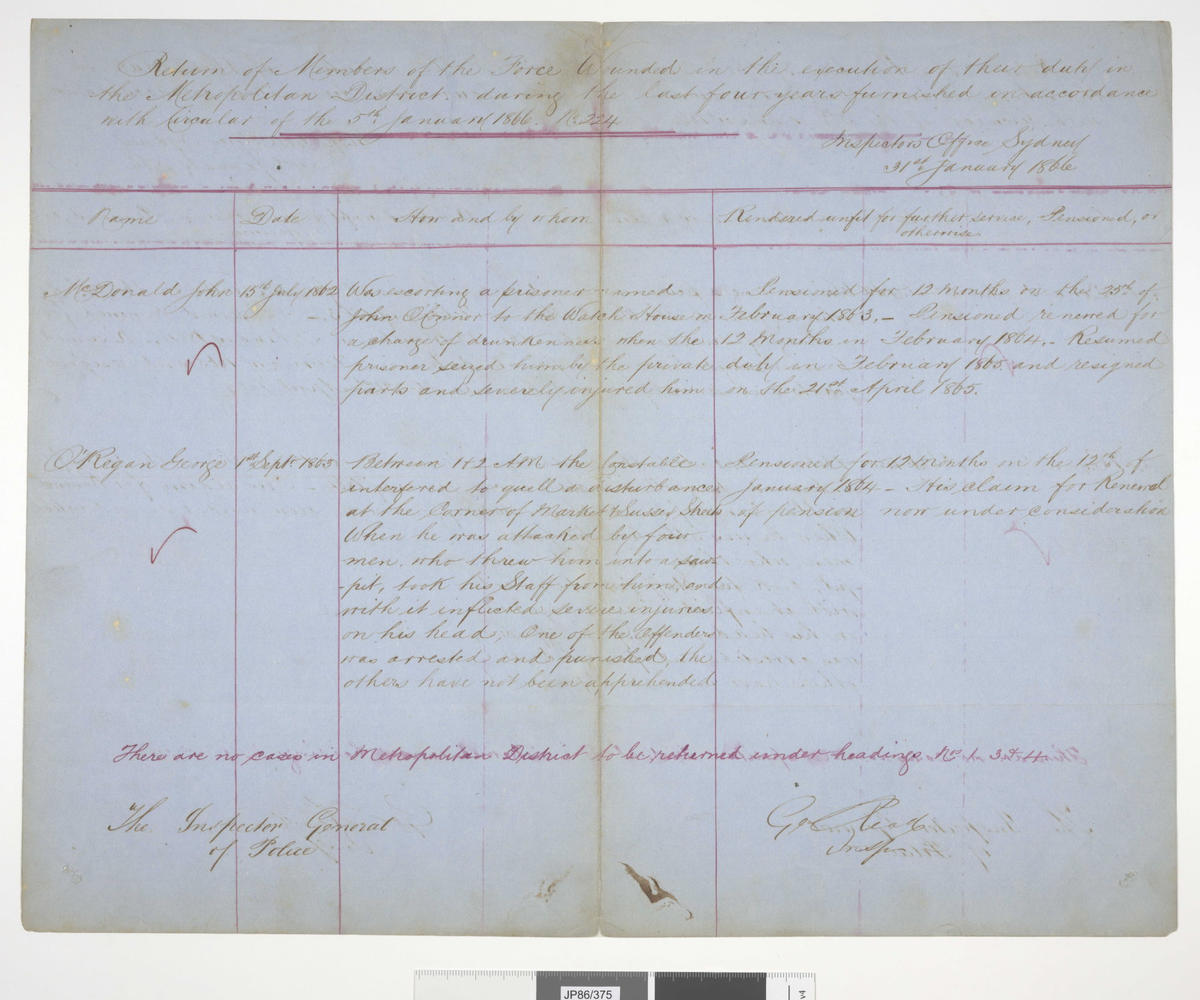 Return of Members of the Force Wounded in the execution of their duty in
the Metropolitan District during the last four years furnished in accordance
with Circular of the 5th January 1866. No. 224
Inspectors Office Sydney
31st January 1866
Name Date How and by whom Rendered unfit for further service, Pensioned, or
otherwise
McDonald John 15th July 1862 Was escorting a prisoner named
John O'Connor to the Watch House on
a charge of drunkenness when the
prisoner seized him by the private
parts and severely injured him
Pensioned for 12 Months on the 25th of
February 1863, - Pensioned renewed for
12 Months in February 1864. - Resumed
duty in February 1865 and resigned
on the 21st April 1865.
O'Regan George 1st Sept. 1863 Between 1 & 2 AM the Constable
interfered to quell a disturbance
at the Corner of Market & Sussex Streets
When he was attacked by four
men, who threw him into a saw-
-pit, took his Staff from him, and
with it inflicted severe injuries
on his head; One of the Offenders
was arrested and punished, the
others have not been apprehended
Pensioned for 12 Months on the 12th of
January 1864 - His claim for Renewal
of pension now under consideration
There are no cases in Metropolitan District to be returned under headings Nos 1. 3 & 4.
The Inspector General
of Police
Geo Read
Inspr
JP86/375